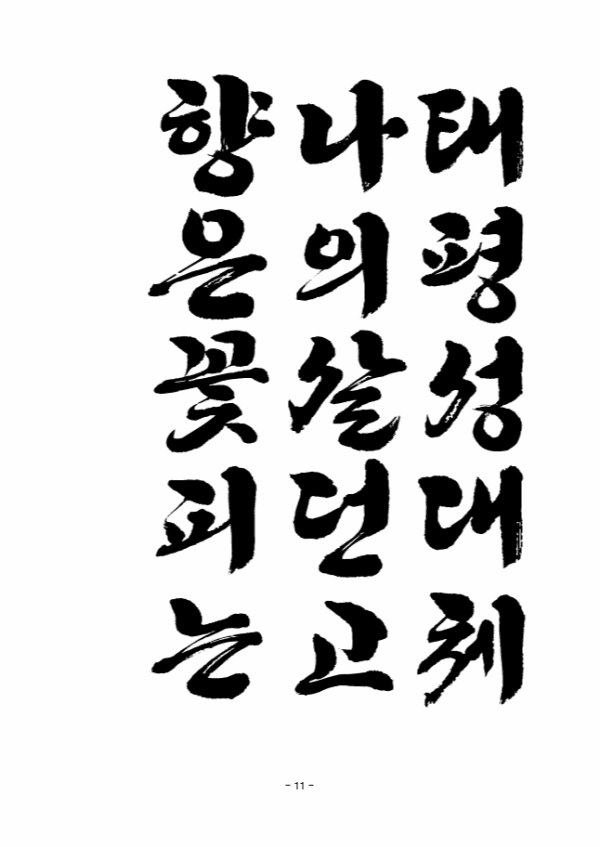 태평성대체
나의살던고
향은꽃피는
- 11 -